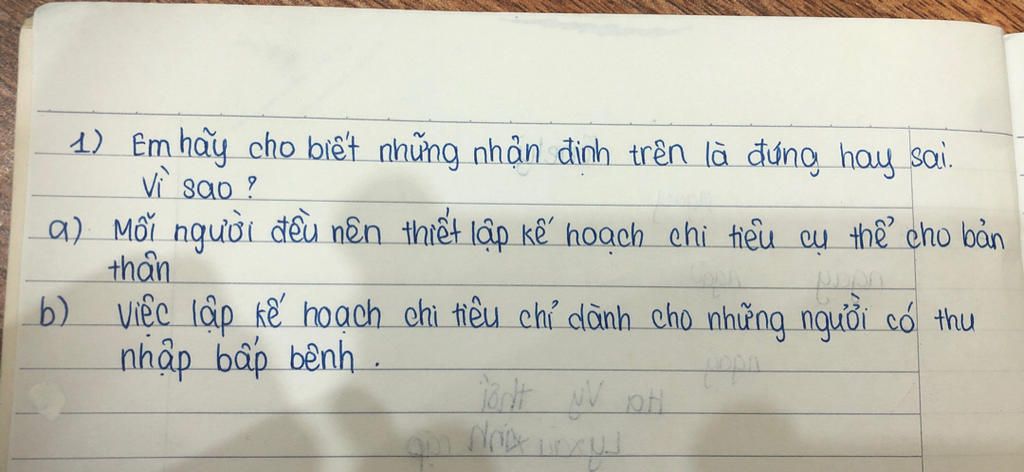 1) Em hãy cho biết những nhận định trên là đúng hay sai.
Vì sao?
a) Mỗi người đều nên thiết lập kế hoạch chi tiêu cụ thể cho bản
thân
b) Việc lập kế hoạch chi tiêu chỉ dành cho những người có thu
nhập bấp bênh.